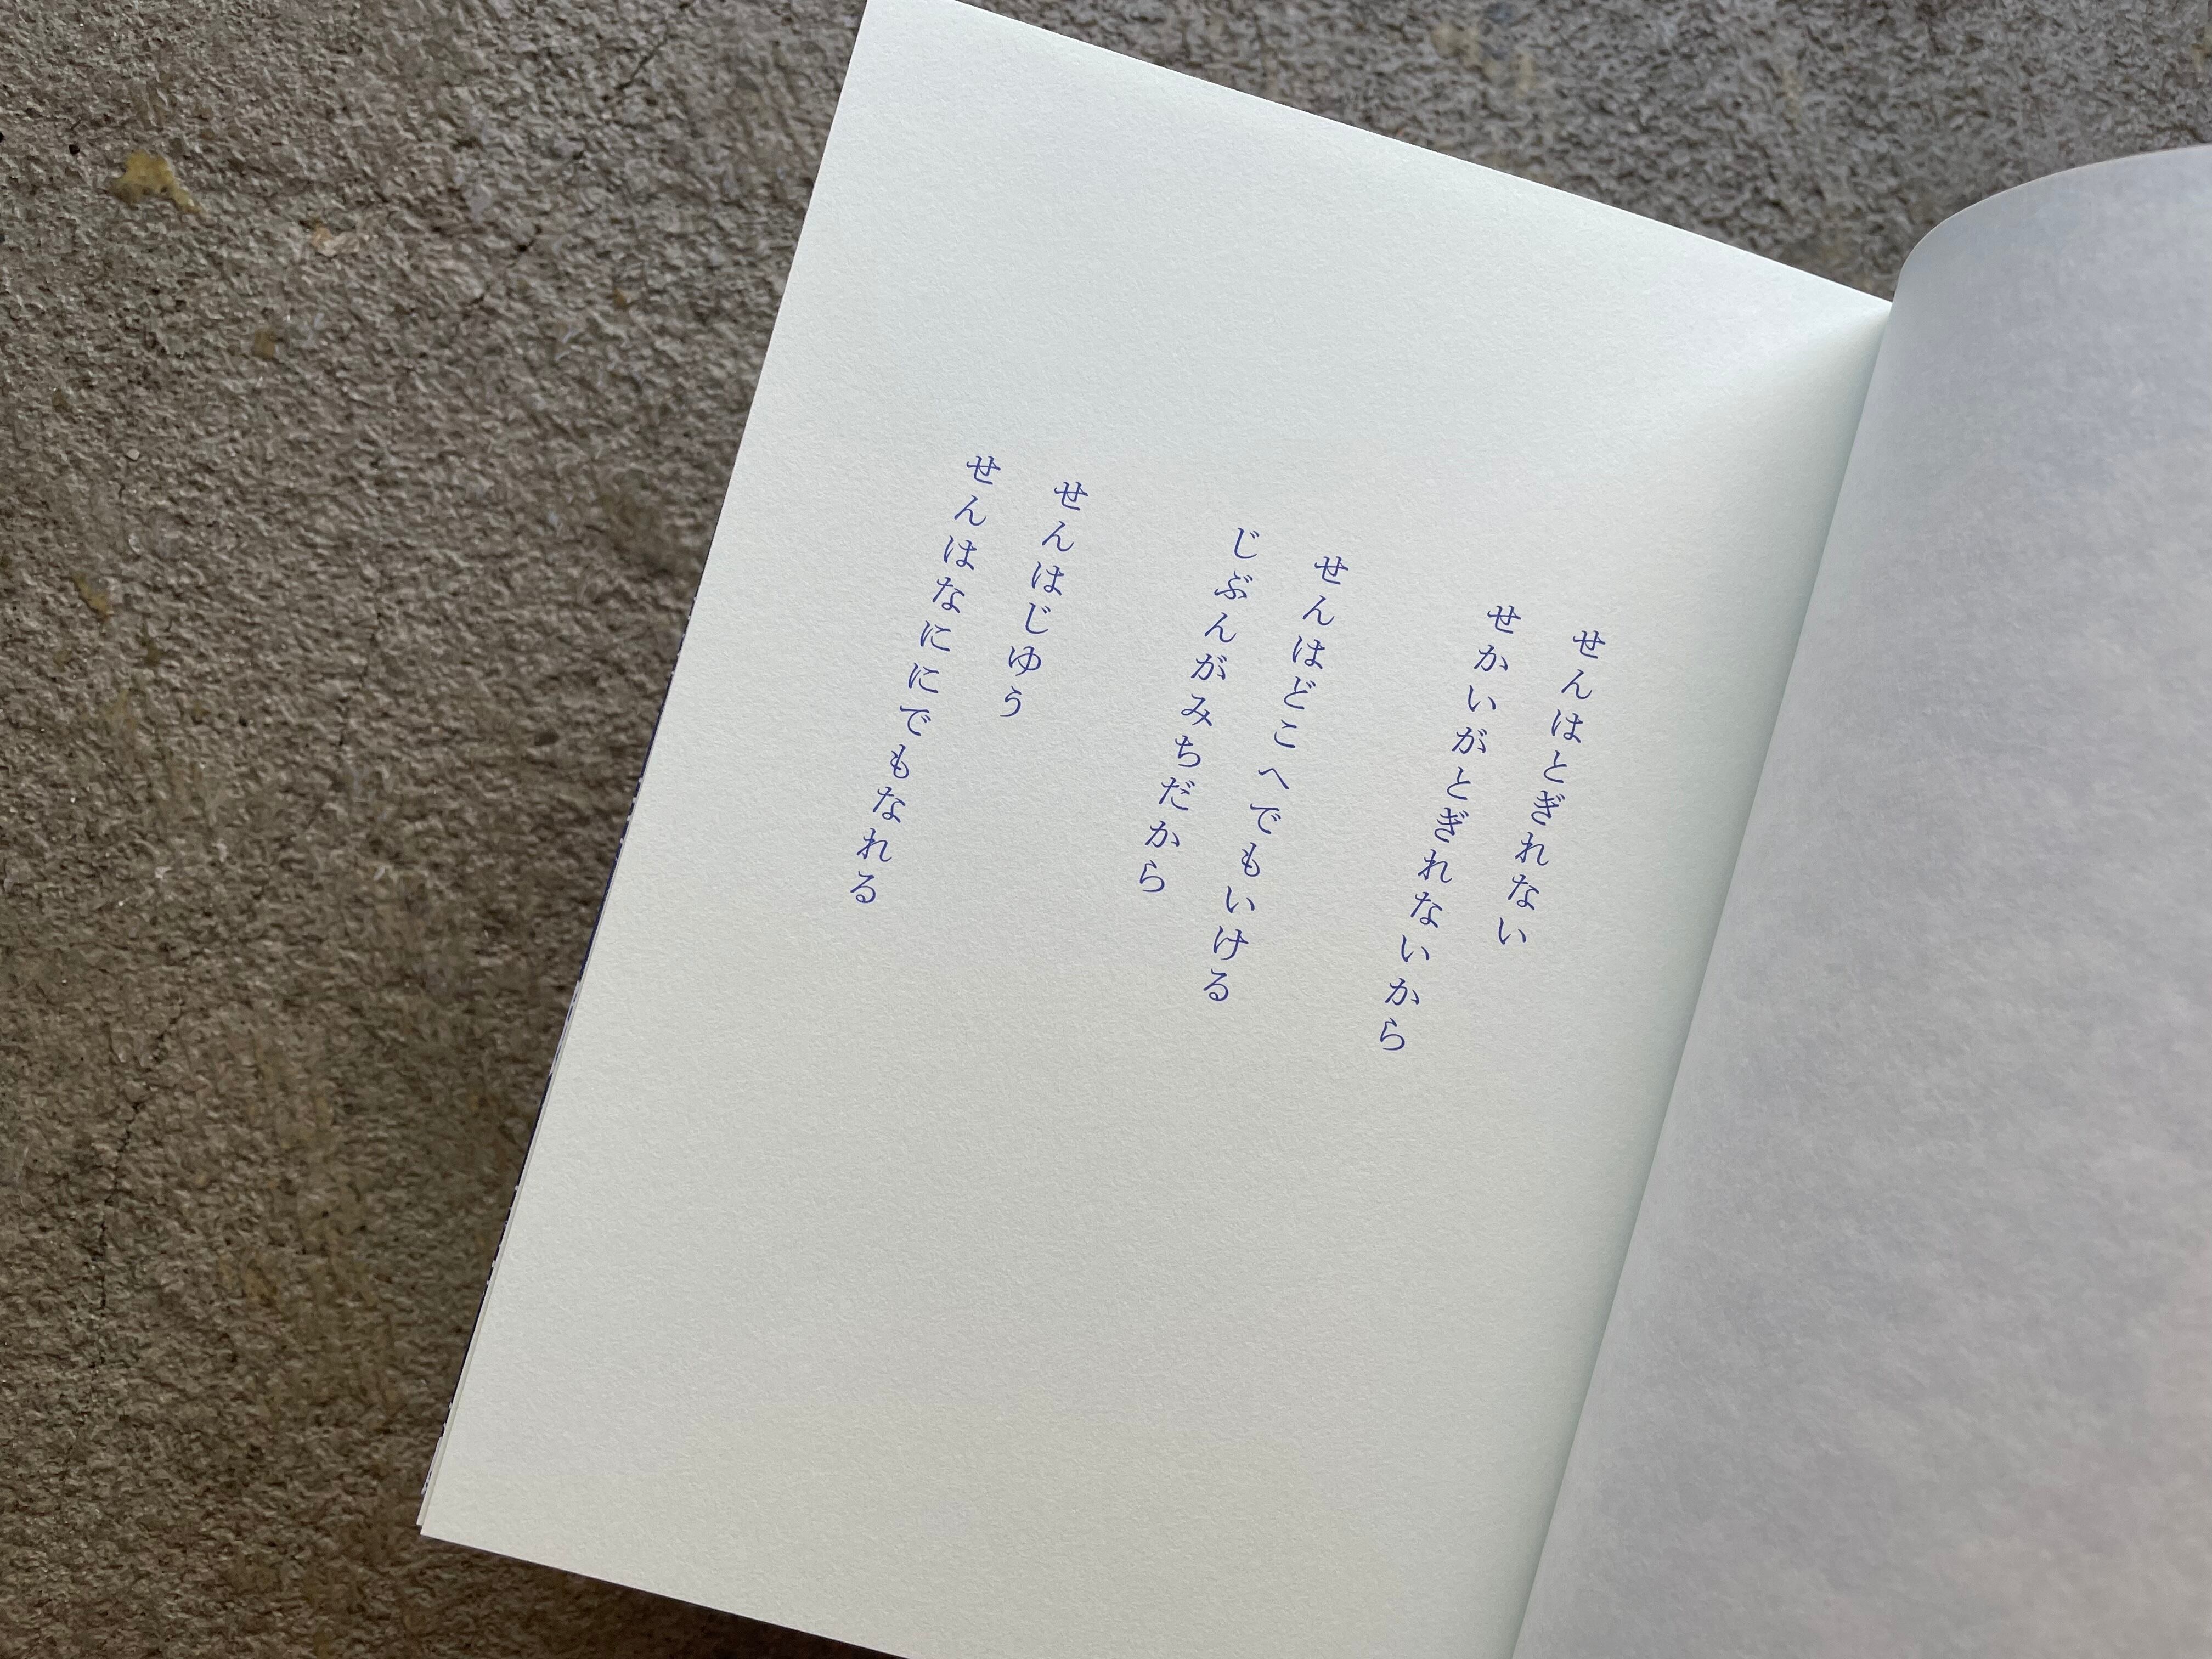 せんはとぎれない
せかいがとぎれないから
せんはどこへでもいける
じぶんがみちだから
せんはじゆう
せんはなににでもなれる